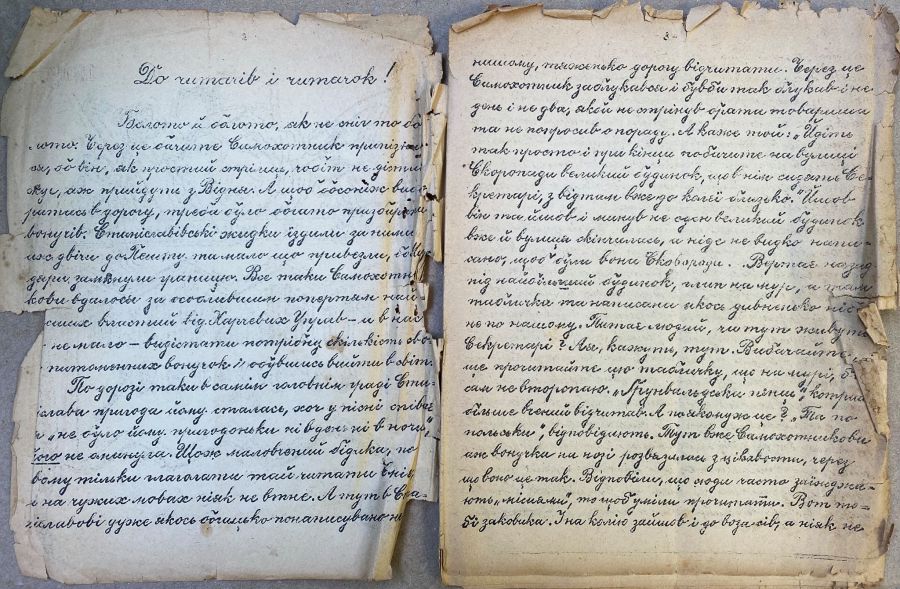 До читачів і читачок!
Болото й болото, як не сніг то бо-
лото. Через це бачите Самохотник припізнив-
ся, бо він, як простий стрілец, чобіт не діста
аж прийдуть з Відня. А щоб босоніж виб-
ратись в дорогу, треба було багато призбирати
вонучів. Станіславівські жидки їздили за ними
аж двічи до Пешту, та мало що привезли, бо Мад-
яри замкнули границю. Все таки Самохотни-
кови вдалося за особлившим попертям най-
висших властий від Харчевих Управ – а в нас
не мало – видістати потрібну скількість
вонучок і обувшись вийти в світ.
По дорозі таки в самім головнім граді Стани-
славa пригода йому сталась, хоч у пісні співає
ся „не було йому пригодоньки ні в день ні в ночи",
його не минула. Щож маловчений бідака, по
свому тільки глаголати тай читати вміє,
і на чужих мовах ніяк не втне. А тут в Ста-
ніславові дуже якось богацько понаписувано не
3
нашому, тяженько дорогу відчитати. Через це
Самохотник заблукався і був би так блукав і не
день і не два, якби не стрінув брата товариша
та не попросив о пораду. А каже той: „Йдіть
так просто і при кінци побачите на вулиці
Скоропади великий будинок, що в нім сидять Се-
кретарі, з відтам вже до колєї близько." Йшов
він та йшов і минув не один великий будинок
вже й вулиця скінчилась, а нідe не видко напи-
сано, щоб була вона Скоропади. Вертає назад
під найбільший будинок, глип на мур, а там
табличка та написана якось дивненько ніс-
не по нашому. Питає людий, чи тут живуть
Секретарі? Аяк, кажуть, тут. Вибачайте
ше прочитайте цю табличку, що на мурі, бо
сам не второпаю. „Ґрунвальдська пише", котрий
більше вчений відчитав. А по якому же це? „Та по
польськи", відповідають. Тут вже Самохотникови
аж вонучка на нозі розвязалась з цікавости, через
що воно це так. Відповіли, що сюди часто заїзджа-
ють „місиями", то щоб уміли прочитати. Вот то-
бі заковика. І на колію зайшов і до воза сів, а ніяк не